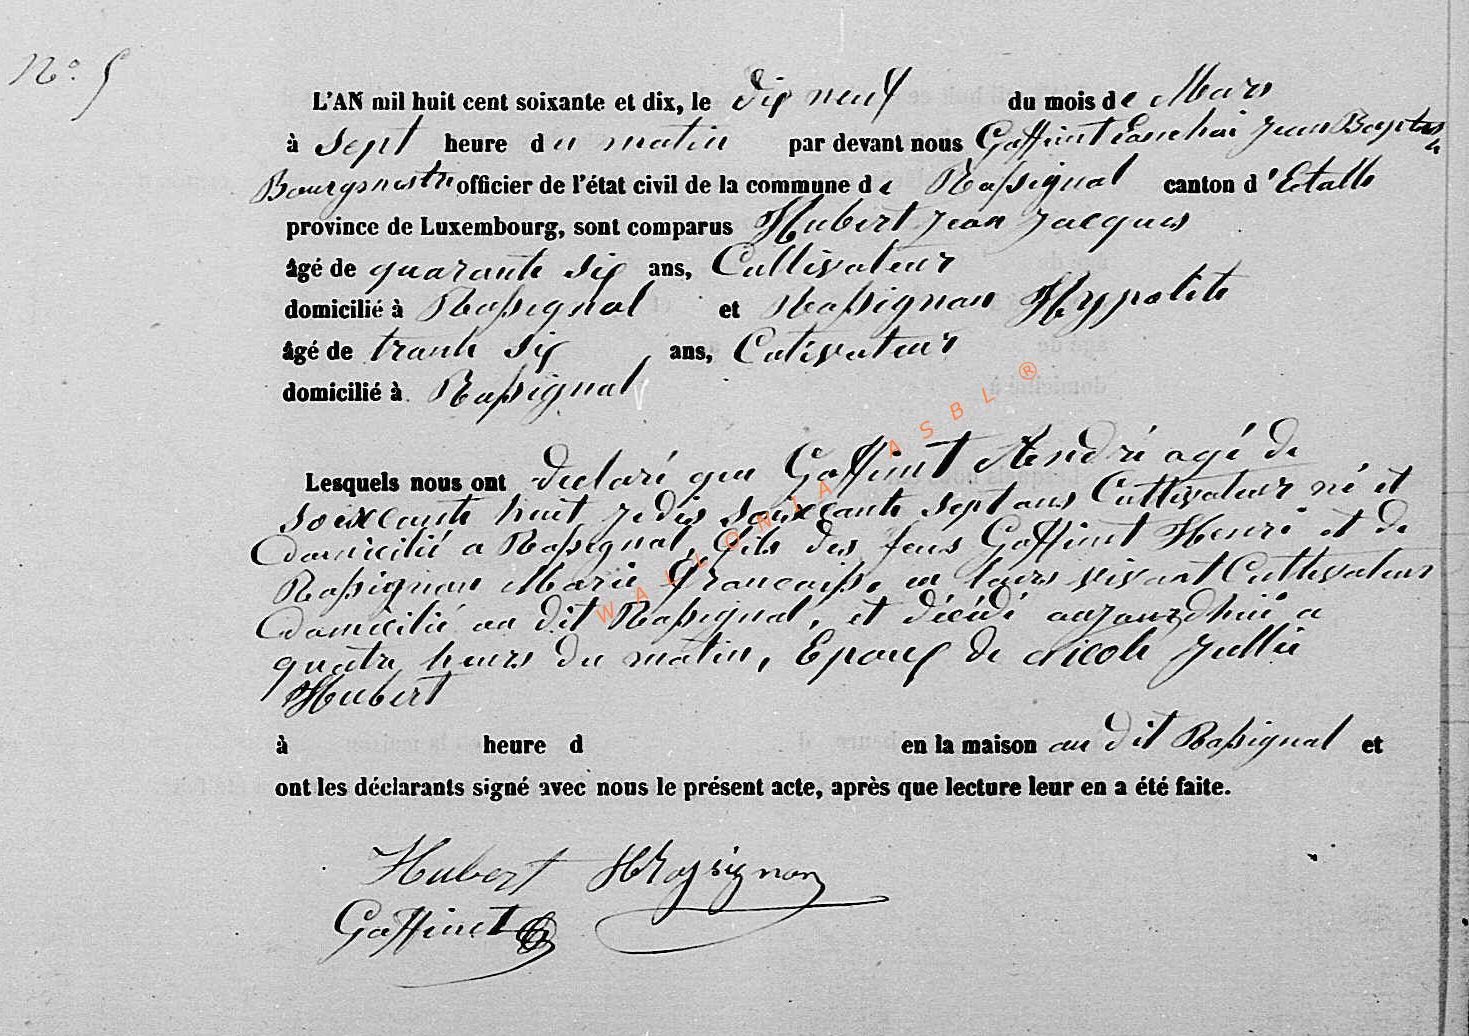 N° 5
L'AN mil huit cent soixante et dix, le dix neuf du mois de Mars
à sept heure du matin par devant nous Goffinet Jean Baptiste
Bourgmestre officier de l'état civil de la commune de Rossignol canton d'Etalle
province de Luxembourg, sont comparus Hubert Jean Jacques
âgé de quarante six ans, Cultivateur
domicilié à Rossignol et Rossignon Hypolite
âgé de trante six ans, Cutivateur
domicilié à Rossignol
Lesquels nous ont declaré que Goffinet André agé de
soixcante huit je dis soixcante sept ans Cultivateur né et
Domicilié a Rossignol, fils des feus Goffinet Henri et de
Rossignon Marie Françoise, en leurs vivant Cultivateur
Domicilié au dit Rossignol, et décédé aujourdhui a
quatre heurs du matin, Epoux de Nicole Jullie
Hubert
à heure d en la maison au dit Rossignol et
ont les déclarants signé avec nous le présent acte, après que lecture leur en a été faite.
Hubert HRossignon
Goffinet
WALLONIA ASBL ®